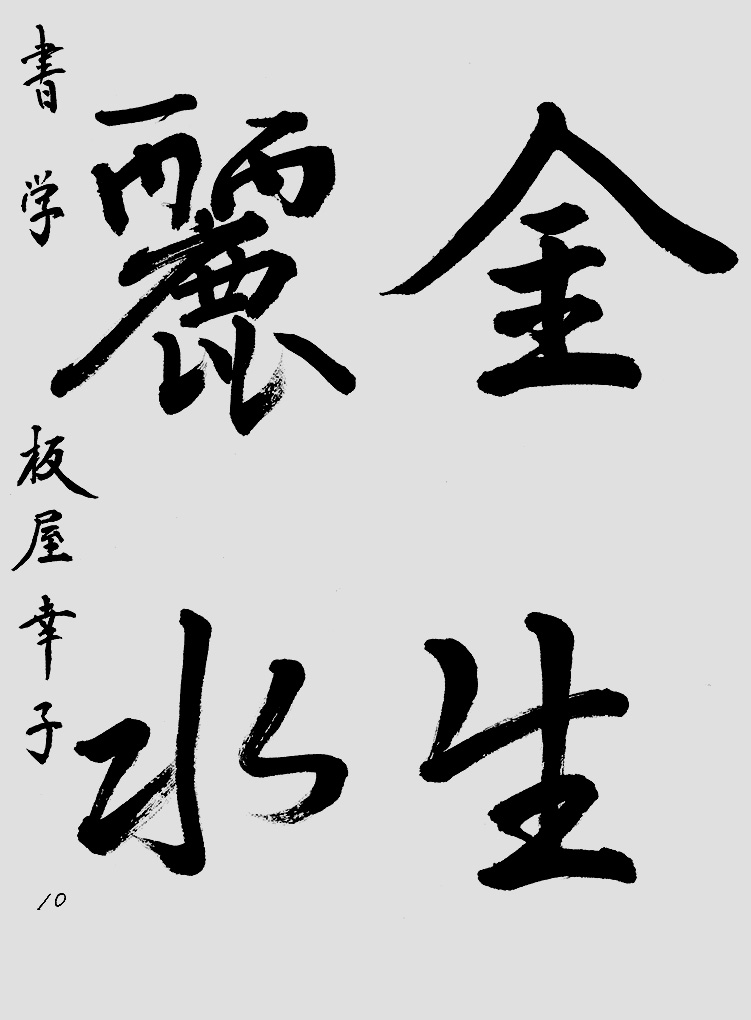 金生
麗水
書学 板屋幸子
10